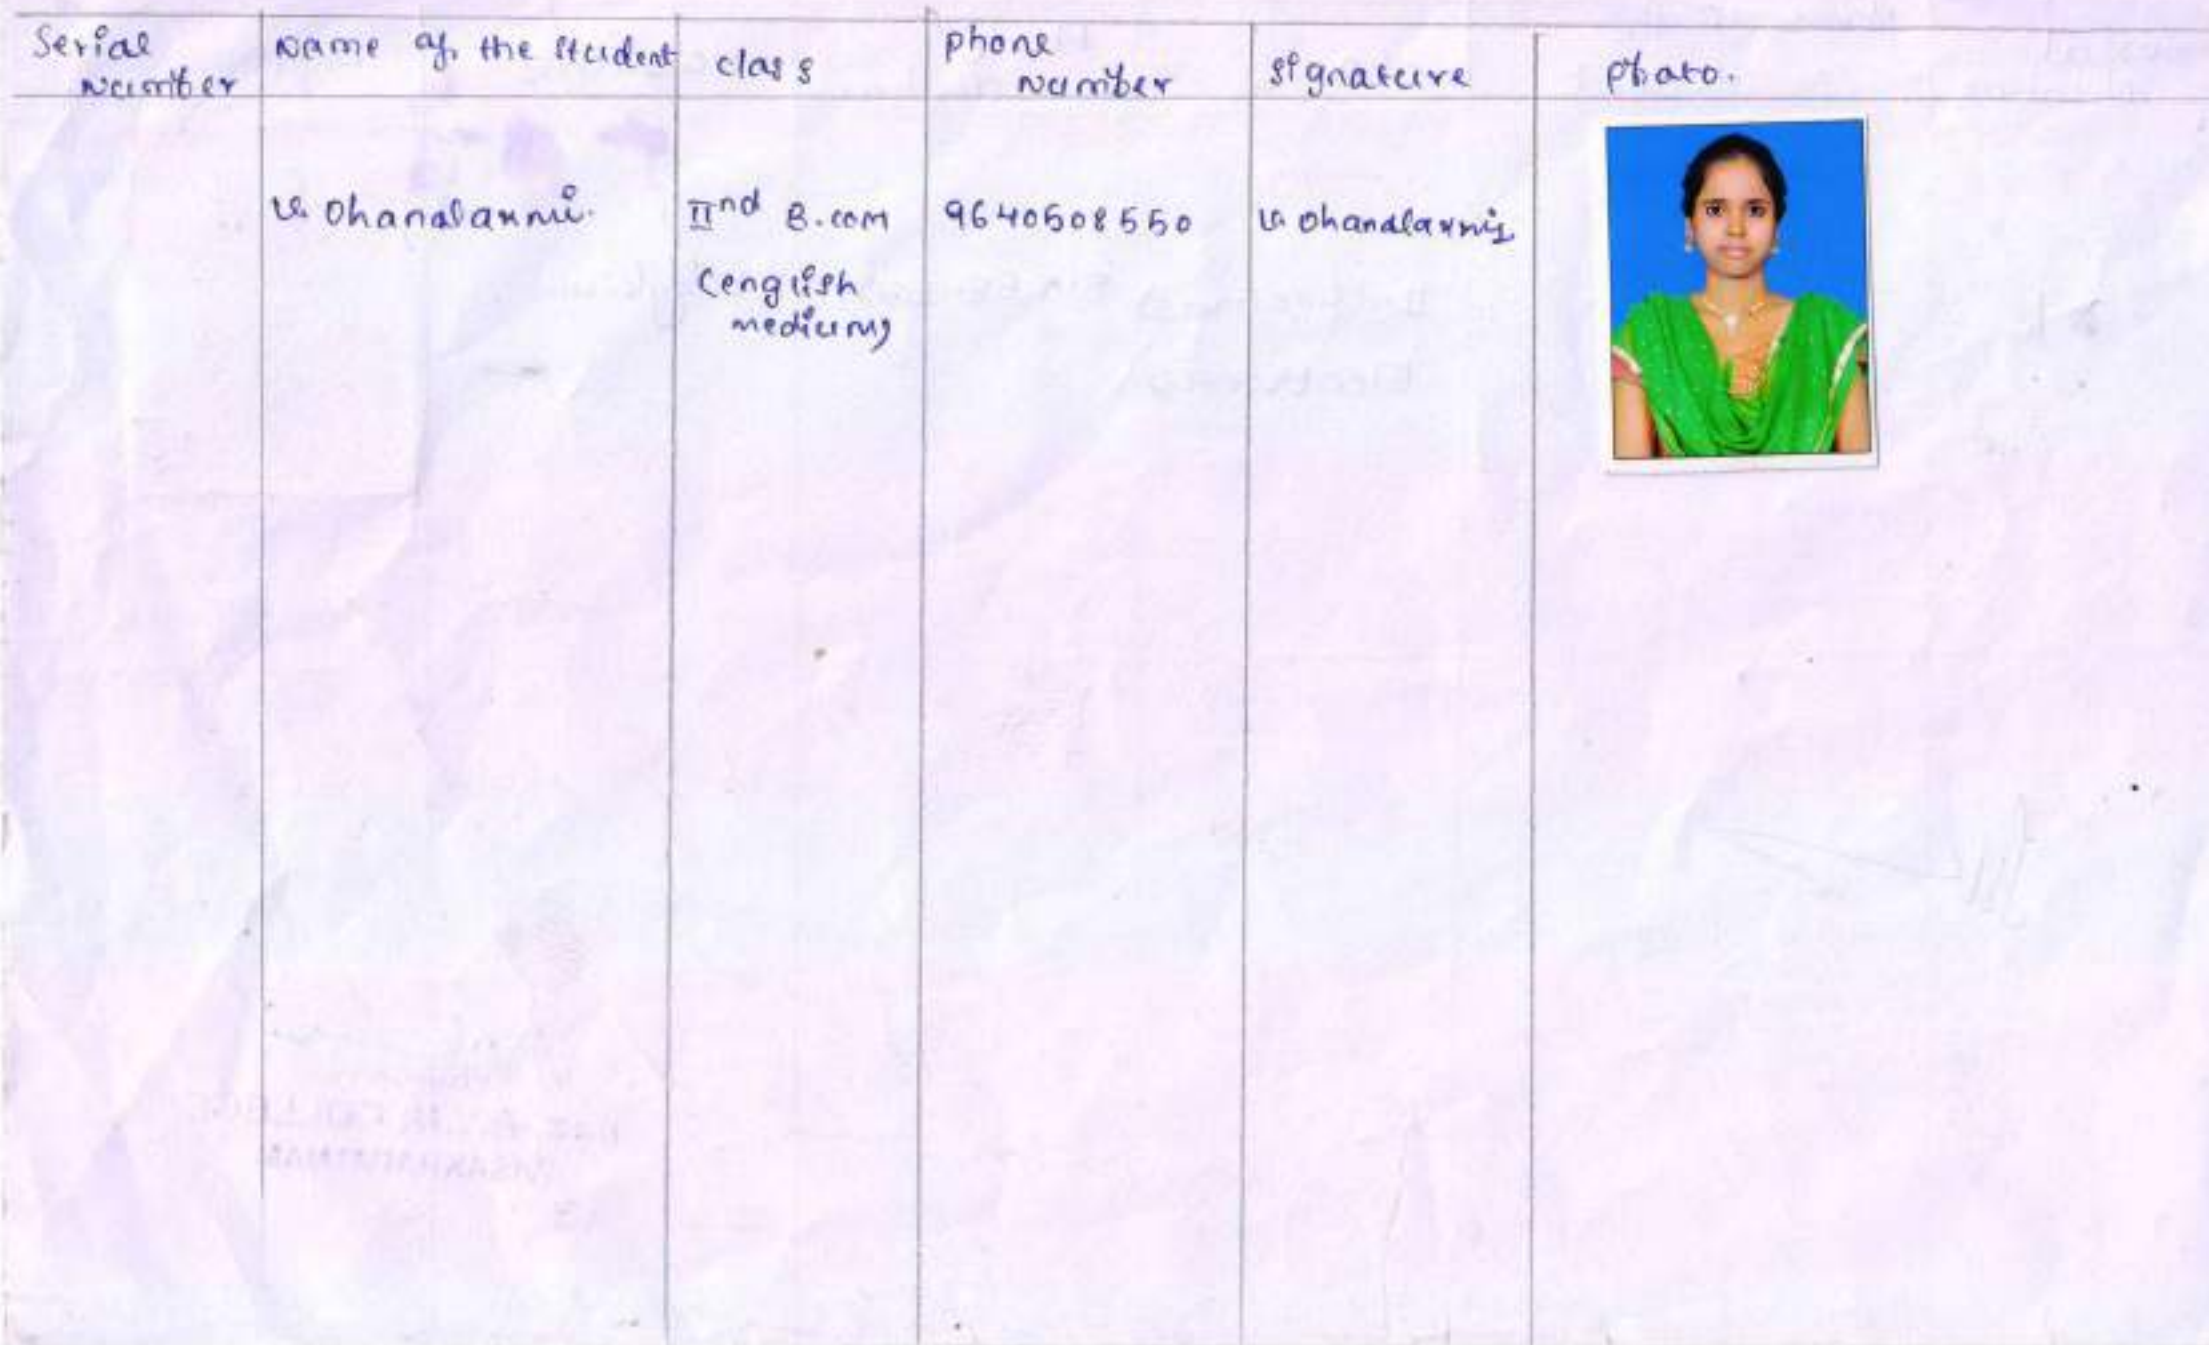 Serial Number
Name of the student
class
phone Number
signature
photo.
V. Dhanalaxmi.
IInd B.com
(english medium)
9640508550
V. Dhanalaxmi